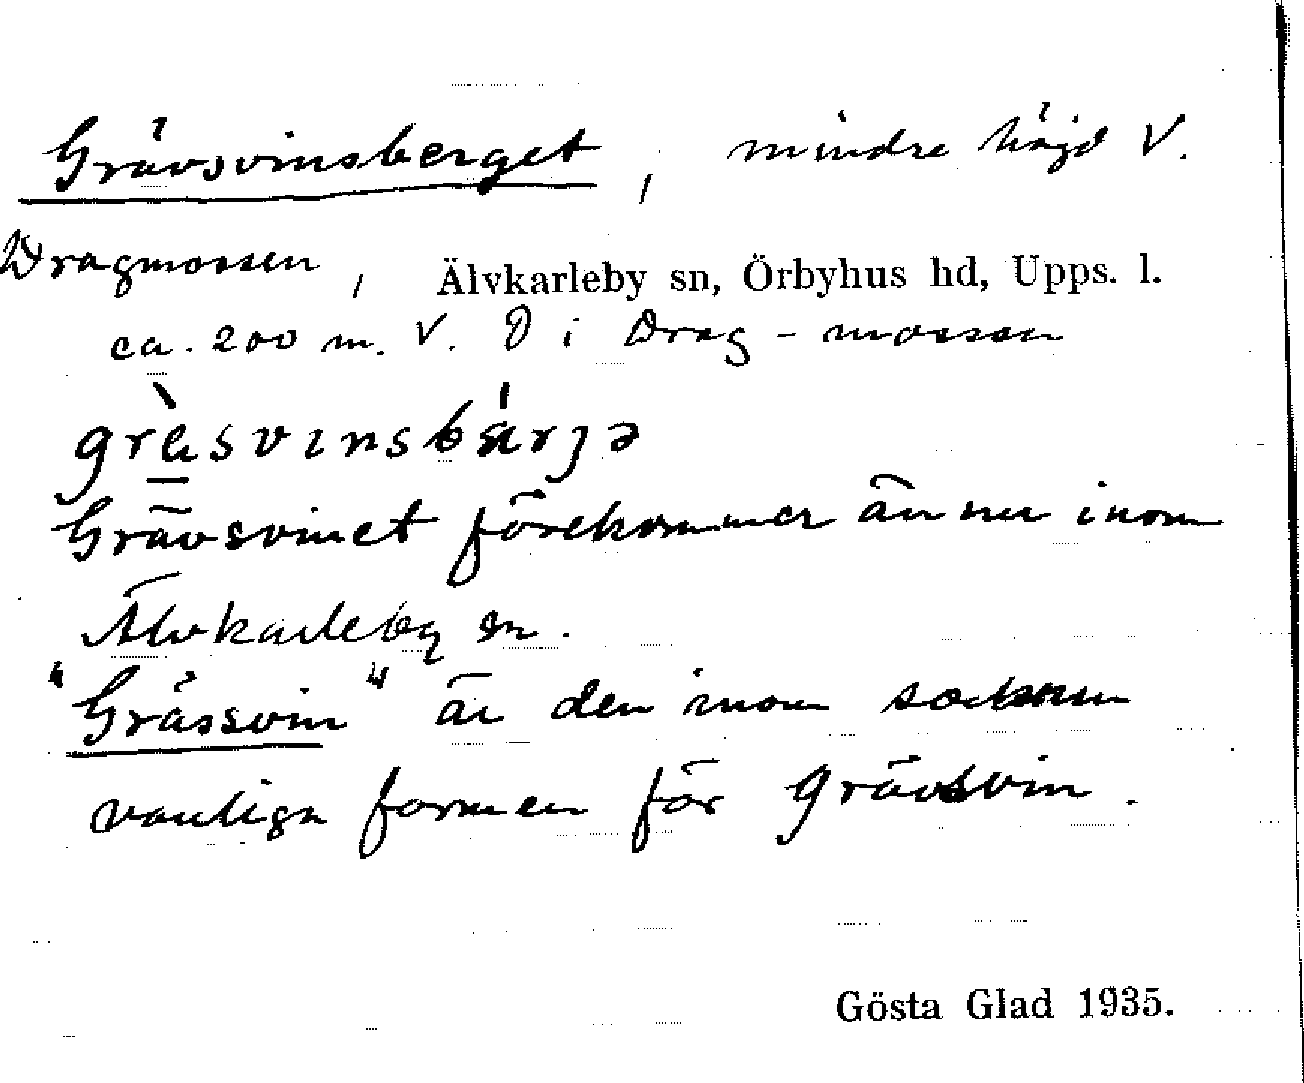 Grävsvinsberget, mindre höjd V.
Dragmossen, Älvkarleby sn, Örbyhus hd, Upps. l.
ca. 200 m. V. D i Drag-mossen
grä̀svinsbä́rjə
Grävsvinet förekommer ännu inom
Älvkarleby sn.
"Grässvin" är den inom socknen
vanliga formen för grävsvin.
Gösta Glad 1935.